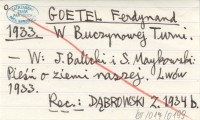 GOETEL Ferdynand.
1933. W Buczynowej Turni.
- W: J. Balicki i S. Maykowski:
Pieśń o ziemi naszej. Lwów
1933.
Rec.: DĄBROWSKI Z. 1934 b.